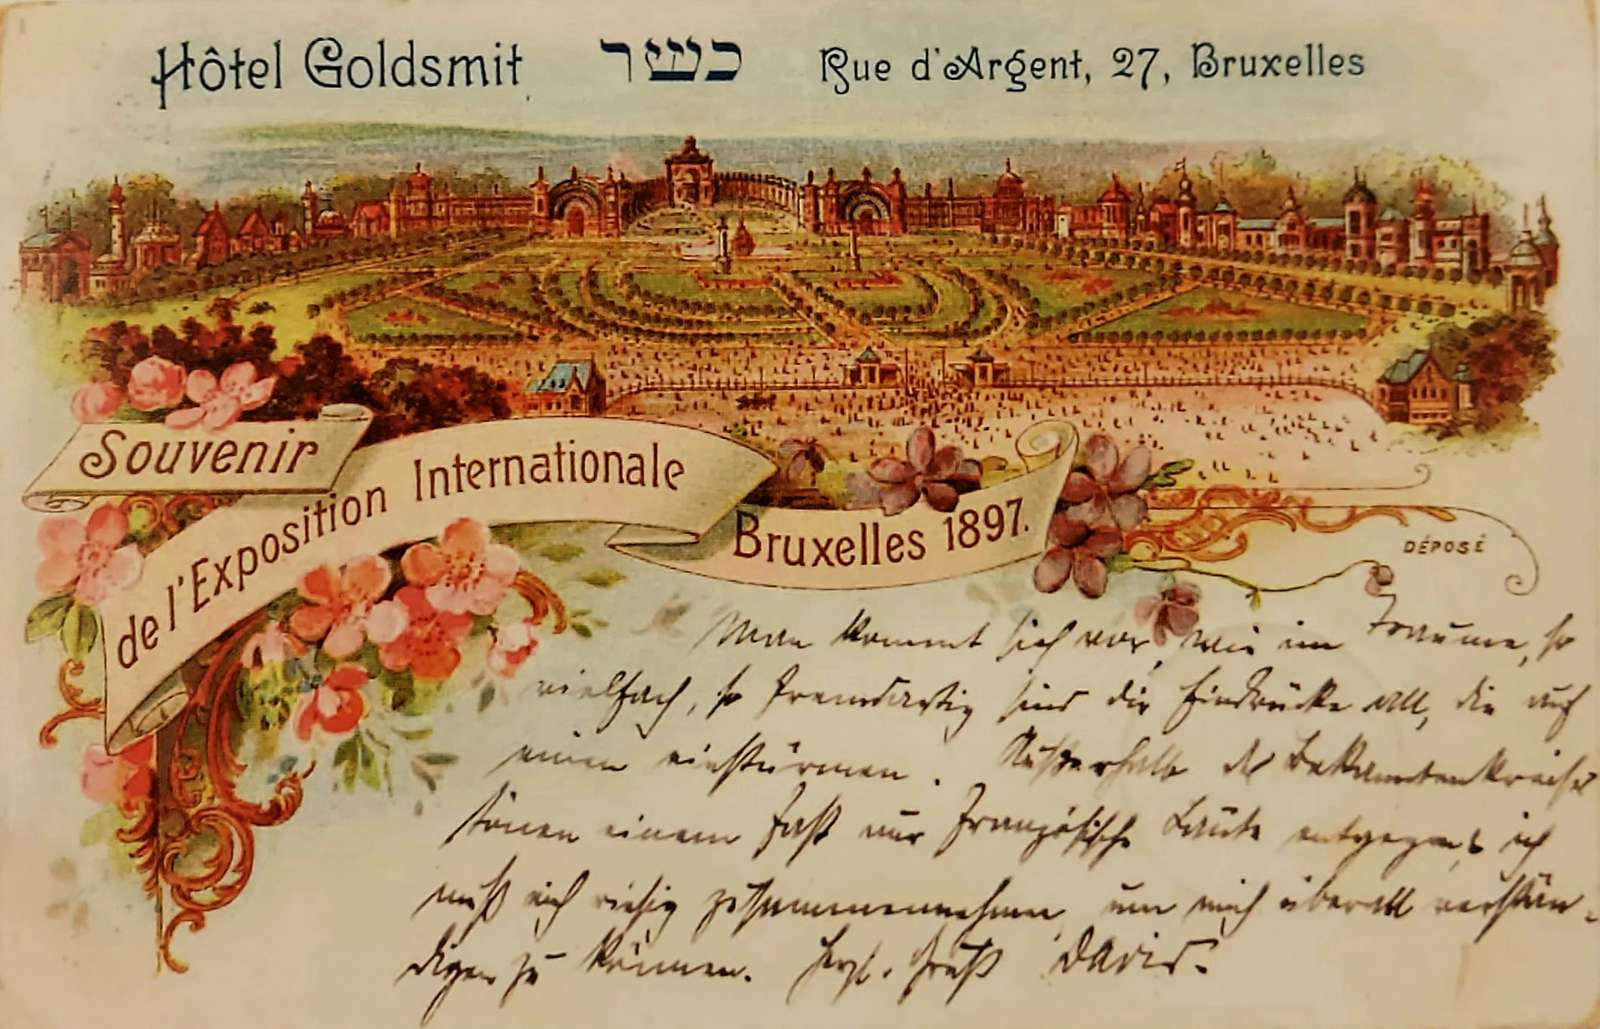 Hôtel Goldsmit כשר Rue d'Argent, 27, Bruxelles
Souvenir
de l'Exposition Internationale
Bruxelles 1897.
DÉPOSÉ
Man kommt sich vor, wie im Traume, so
vielfach, so fremdartig sind die Eindrücke all, die auf
einen einstürmen. Außerhalb des Bekanntenkreises
tönen einem fast nur französische Laute entgegen, ich
muß mich riesig zusammennehmen, um mich überall verstän-
digen zu können. Herzl. Gruß David.